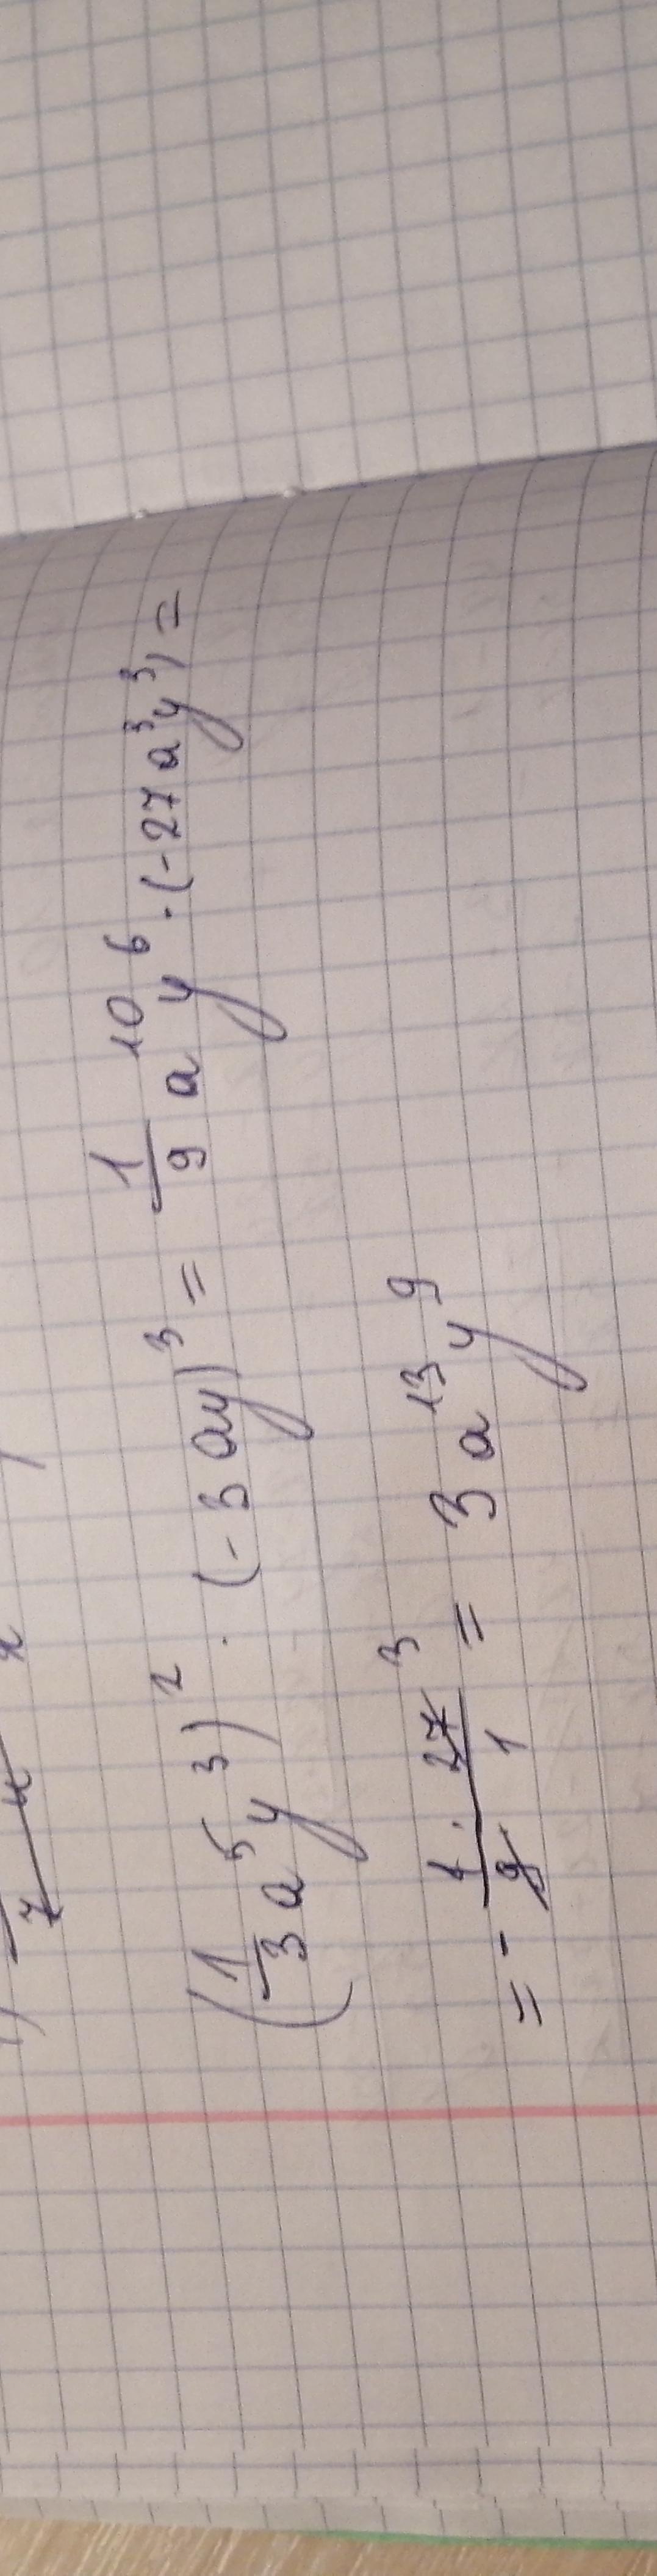 (1/3 a⁵y³)² · (-3ay)³ = 1/9 a¹⁰y⁶ · (-27a³y³) =
= - 1/9 · 27/1 ³ = 3a¹³y⁹